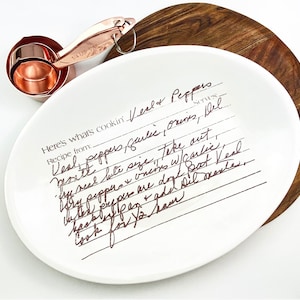 Here's what's cookin' Veal & Peppers
Recipe from serves
Veal, peppers, garlic, onions, Oil
up veal bite size, take out,
fry peppers & onions w/ garlic,
when peppers are done put Veal
back in pan & add
Cook for ½ hour